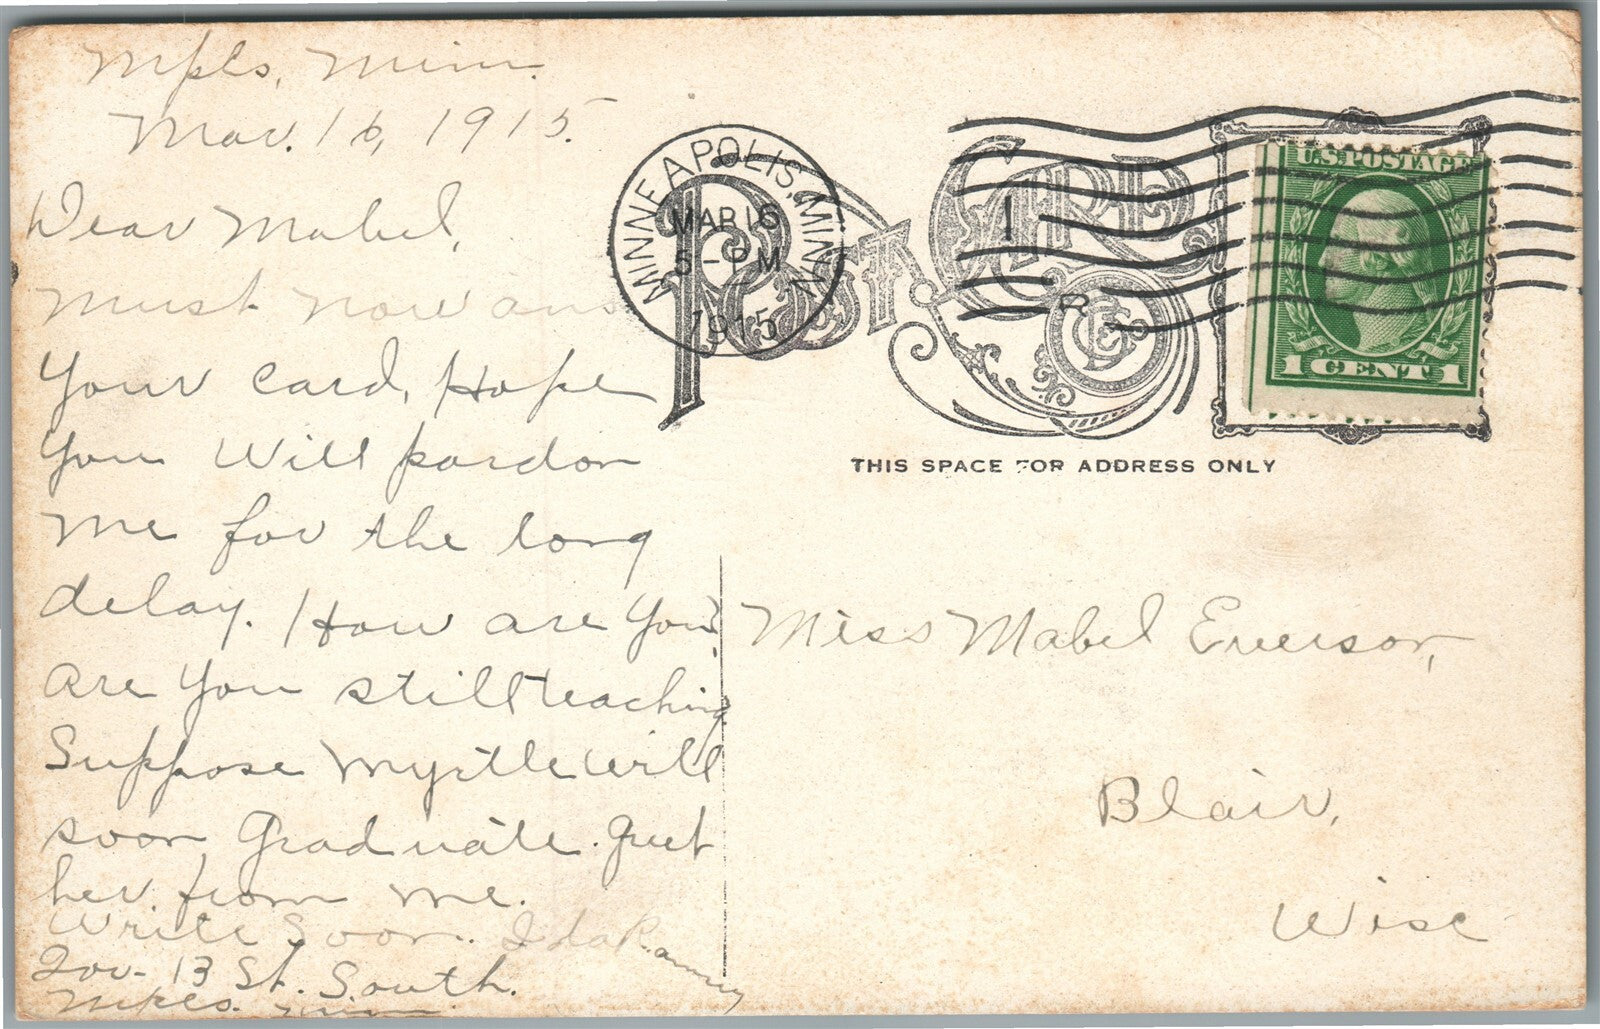 Mpls, Minn.
Mar. 16, 1915.
Dear Mabel,
must now ans
Your card, Hope
You Will pardon
me for the long
delay. How are You?
Are You still teaching
Suppose Myrtle will
soon Graduate. Greet
her from me.
Write Soon. Ida
13 St. South.
Mpls. Minn.
MINNEAPOLIS, MINN.
MAR 16
5 - PM
1915
POST CARD
1
R
U.S. POSTAGE
1 CENT 1
THIS SPACE FOR ADDRESS ONLY
Miss Mabel Everson,
Blair,
Wisc